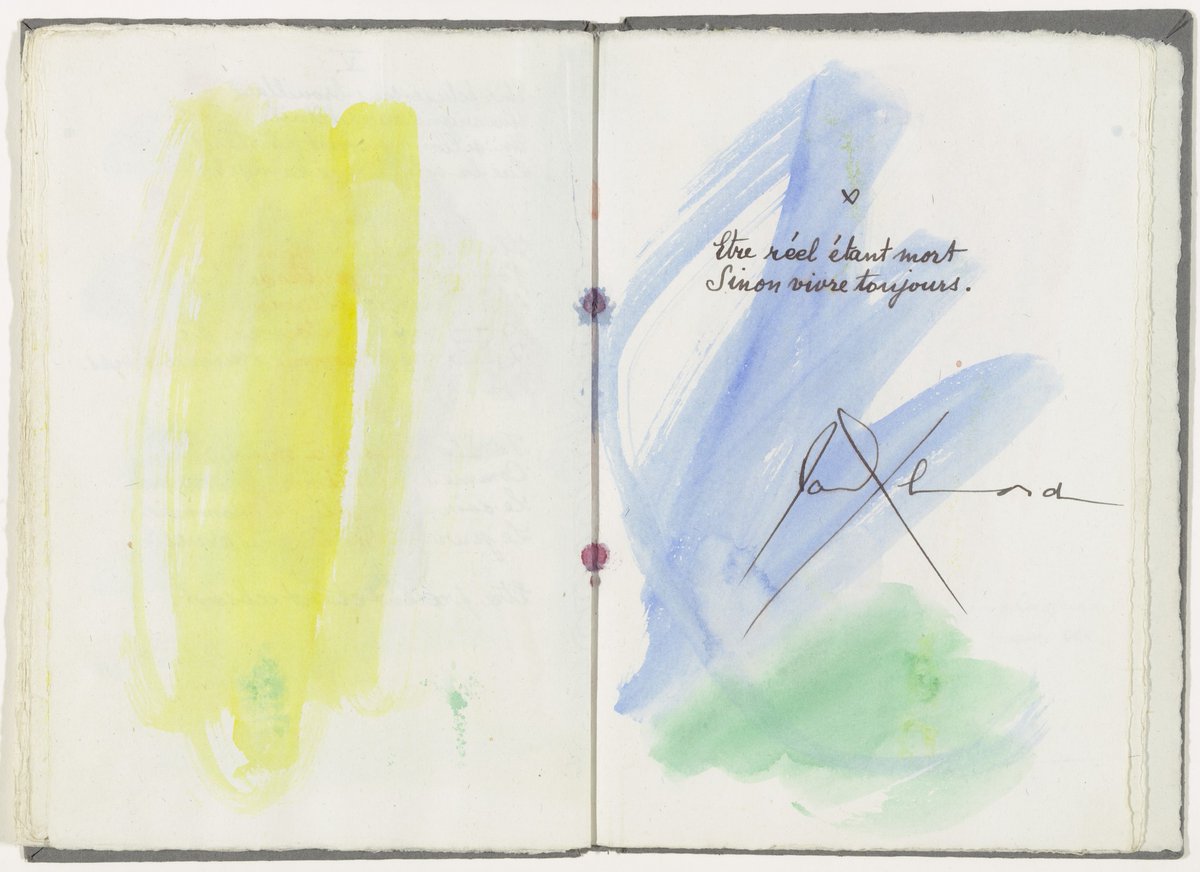 x
Etre réel étant mort
Sinon vivre toujours.
Paul Eluard